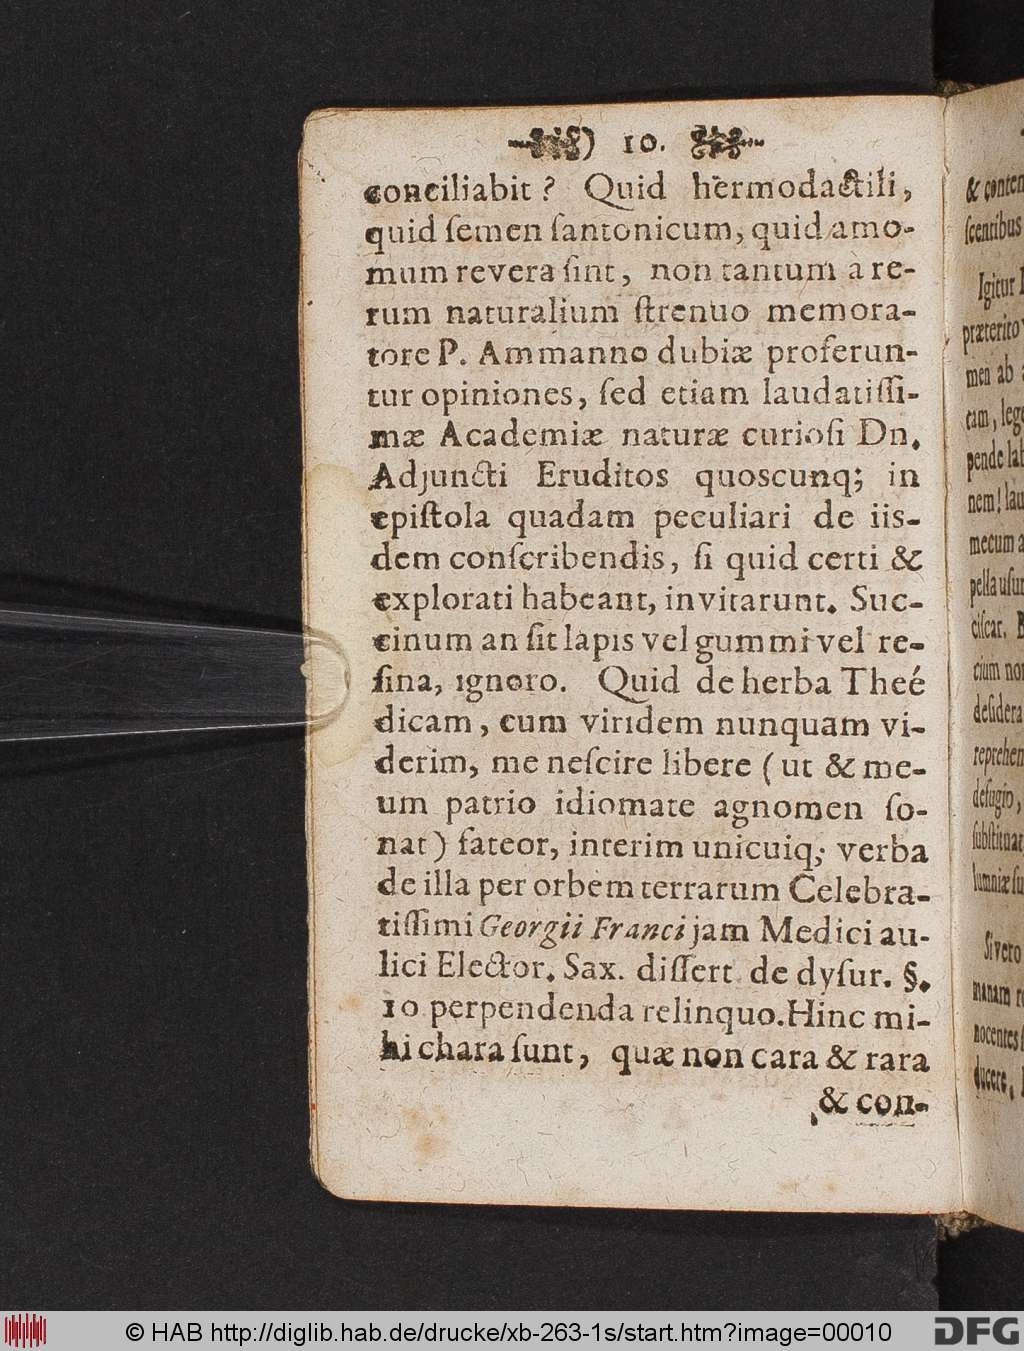 ) 10.
conciliabit? Quid hermodactili,
quid ſemen ſantonicum, quid amo-
mum revera ſint, non tantum à re-
rum naturalium ſtrenuo memora-
tore P. Ammanno dubiæ proferun-
tur opiniones, ſed etiam laudatiſſi-
mæ Academiæ naturæ curioſi Dn.
Adjuncti Eruditos quoscunq; in
epiſtola quadam peculiari de iis-
dem conſcribendis, ſi quid certi &
explorati habeant, invitarunt. Suc-
cinum an ſit lapis vel gummi vel re-
ſina, ignoro. Quid de herba Theé
dicam, cum viridem nunquam vi-
derim, me neſcire libere (ut & me-
um patrio idiomate agnomen ſo-
nat) fateor, interim unicuiq; verba
de illa per orbem terrarum Celebra-
tiſſimi Georgii Franci jam Medici au-
lici Elector. Sax. diſſert. de dyſur. §.
10 perpendenda relinquo. Hinc mi-
hi chara ſunt, quæ non cara & rara
& con-
& conten
ſcentibus
Igitur
præterito
men ab
tam, lege
pende
nem! lau
mecum a
pella uſur
ciſcar.
cium non
deſidera
reprehen
defugio,
ſubſtituat
lumniæ ſu
Si vero
manam
nocentes
ducere,
© HAB http://diglib.hab.de/drucke/xb-263-1s/start.htm?image=00010
DFG